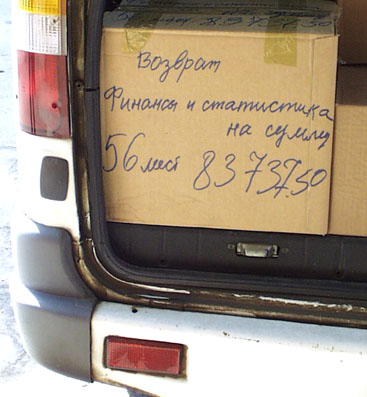 Возврат
Финансы и статистика
на сумму
56 мест 83737.50